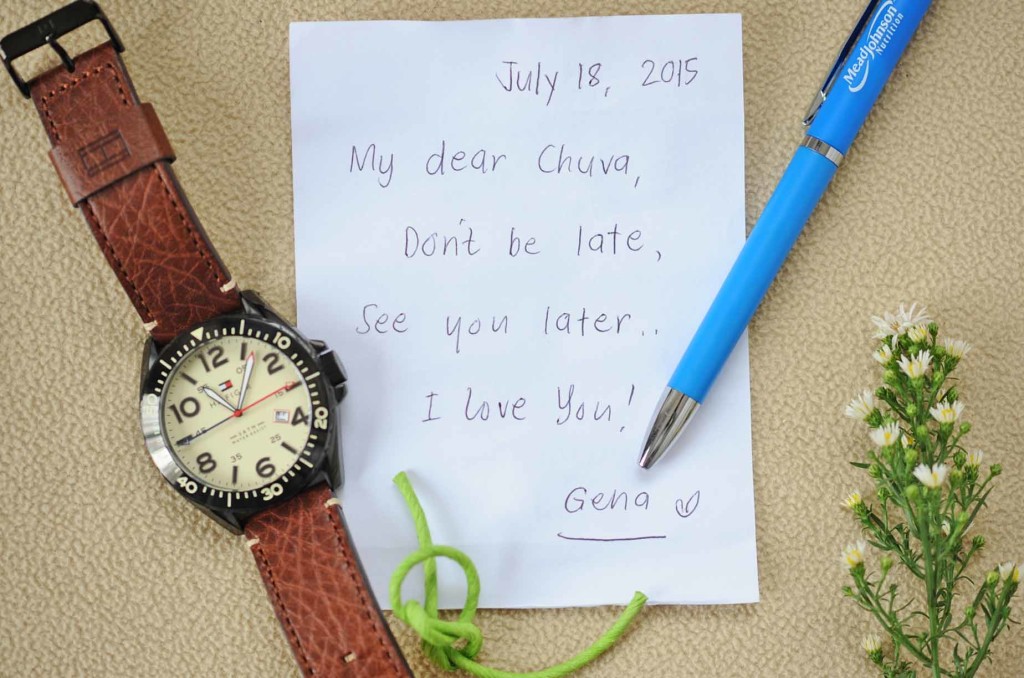 July 18, 2015
My dear Chuva,
Don't be late,
See you later..
I love You!
Gena
MeadJohnson
Nutrition
10
12
2
4
6
8
10
20
30
40
25
35